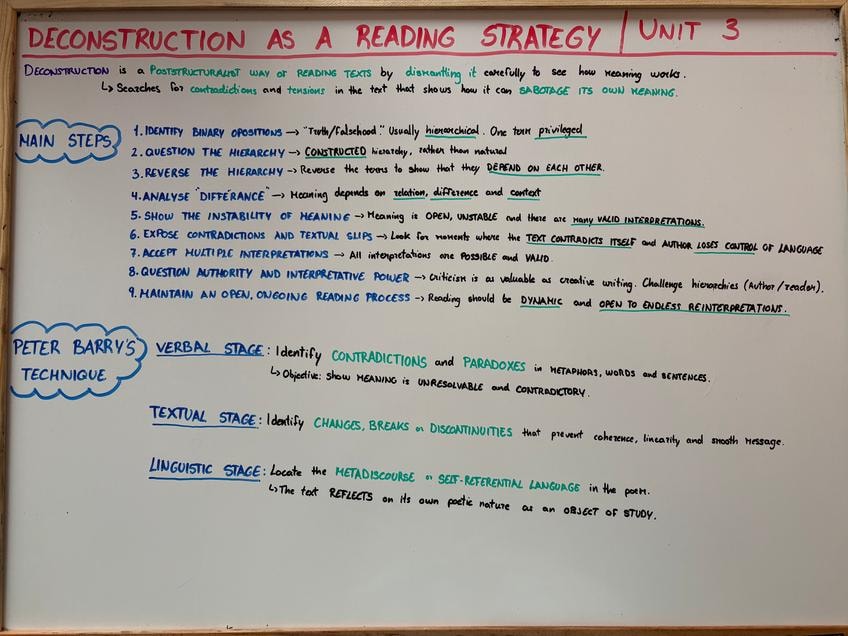 DECONSTRUCTION AS A READING STRATEGY / UNIT 3
DECONSTRUCTION is a POSTSTRUCTURALIST WAY OF READING TEXTS by dismantling it carefully to see how meaning works.
↳ Searches for contradictions and tensions in the text that shows how it can SABOTAGE ITS OWN MEANING.
MAIN STEPS
1. IDENTIFY BINARY OPOSITIONS → "Truth/falsehood." Usually hierarchical. One term privileged
2. QUESTION THE HIERARCHY → CONSTRUCTED hierarchy, rather than natural
3. REVERSE THE HIERARCHY → Reverse the terms to show that they DEPEND ON EACH OTHER.
4. ANALYSE "DIFFÉRANCE" → Meaning depends on relation, difference and context
5. SHOW THE INSTABILITY OF MEANING → Meaning is OPEN, UNSTABLE and there are MANY VALID INTERPRETATIONS.
6. EXPOSE CONTRADICTIONS AND TEXTUAL SLIPS → Look for moments where the TEXT CONTRADICTS ITSELF and AUTHOR LOSES CONTROL OF LANGUAGE
7. ACCEPT MULTIPLE INTERPRETATIONS → All interpretations are POSSIBLE and VALID.
8. QUESTION AUTHORITY AND INTERPRETATIVE POWER → Criticism is as valuable as creative writing. Challenge hierarchies (Author/reader).
9. MAINTAIN AN OPEN, ONGOING READING PROCESS → Reading should be DYNAMIC and OPEN TO ENDLESS REINTERPRETATIONS.
PETER BARRY'S
TECHNIQUE
VERBAL STAGE: Identify CONTRADICTIONS and PARADOXES in METAPHORS, WORDS and SENTENCES.
↳ Objective: show MEANING is UNRESOLVABLE and CONTRADICTORY.
TEXTUAL STAGE: Identify CHANGES, BREAKS or DISCONTINUITIES that prevent coherence, linearity and smooth message.
LINGUISTIC STAGE: Locate the METADISCOURSE or SELF-REFERENTIAL LANGUAGE in the poem.
↳ The text REFLECTS on its own poetic nature as an OBJECT OF STUDY.